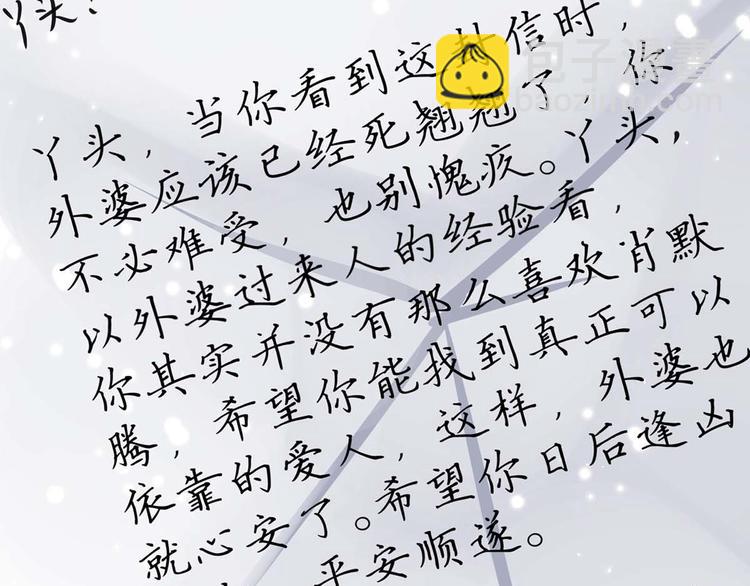 丫头：
丫头，当你看到这封信时，
外婆应该已经死翘翘了，你
不必难受，也别愧疚。丫头，
以外婆过来人的经验看，
你其实并没有那么喜欢肖默
腾，希望你能找到真正可以
依靠的爱人，这样，外婆也
就心安了。希望你日后逢凶
平安顺遂。
包子漫畫
baozimng.com